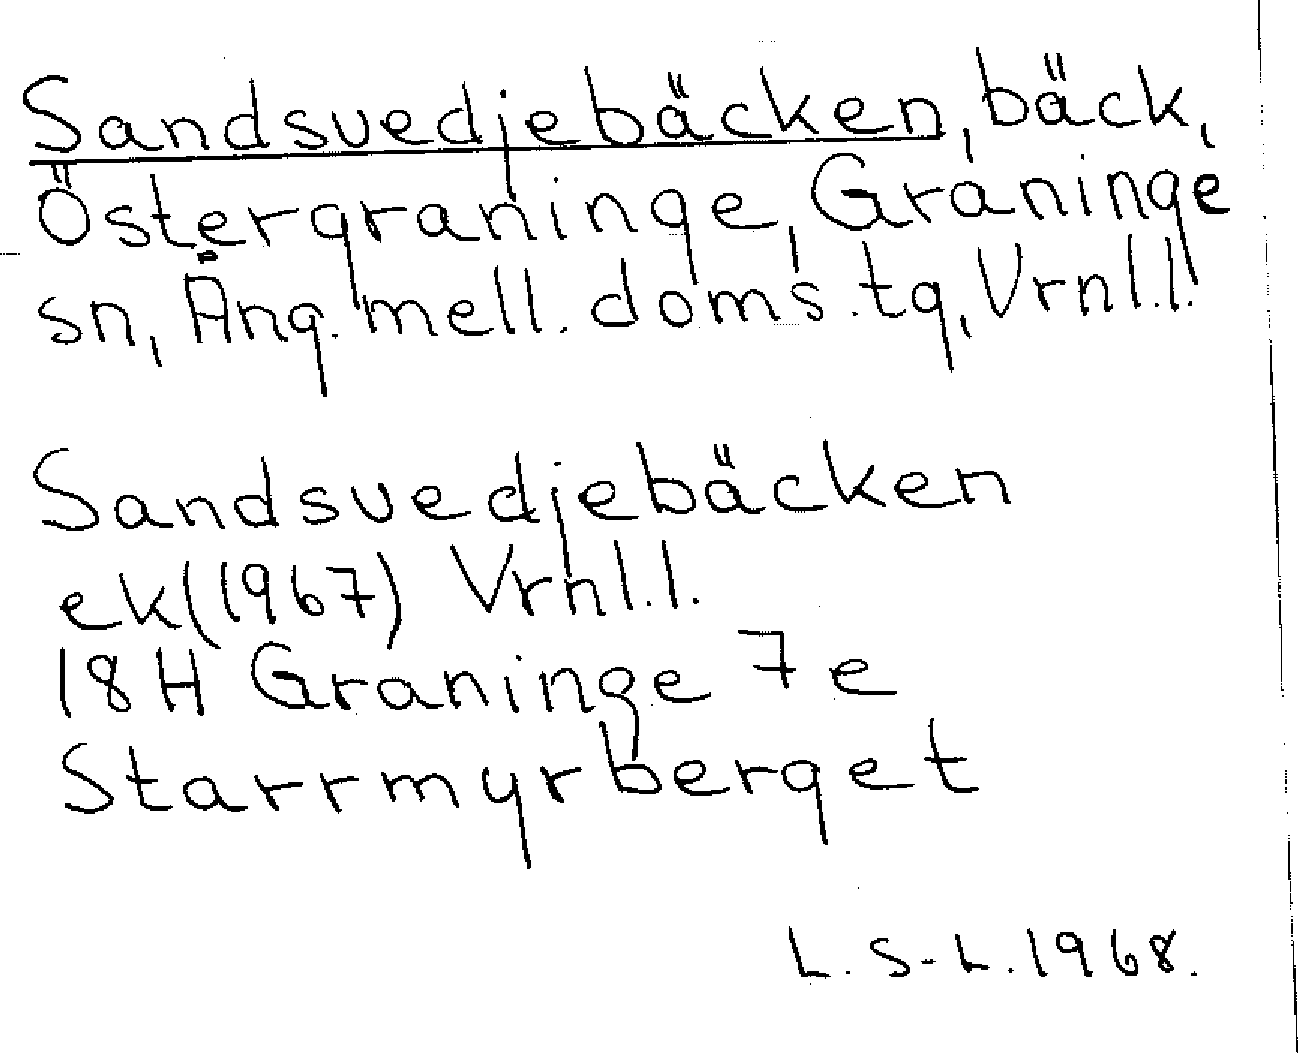 Sandsvedjebäcken, bäck,
Östergraninge, Graninge
sn, Ång. mell. doms. tg, Vrnl.l.
Sandsvedjebäcken
ek (1967) Vrnl.l.
18 H Graninge 7 e
Starrmyrberget
L. S-L. 1968.